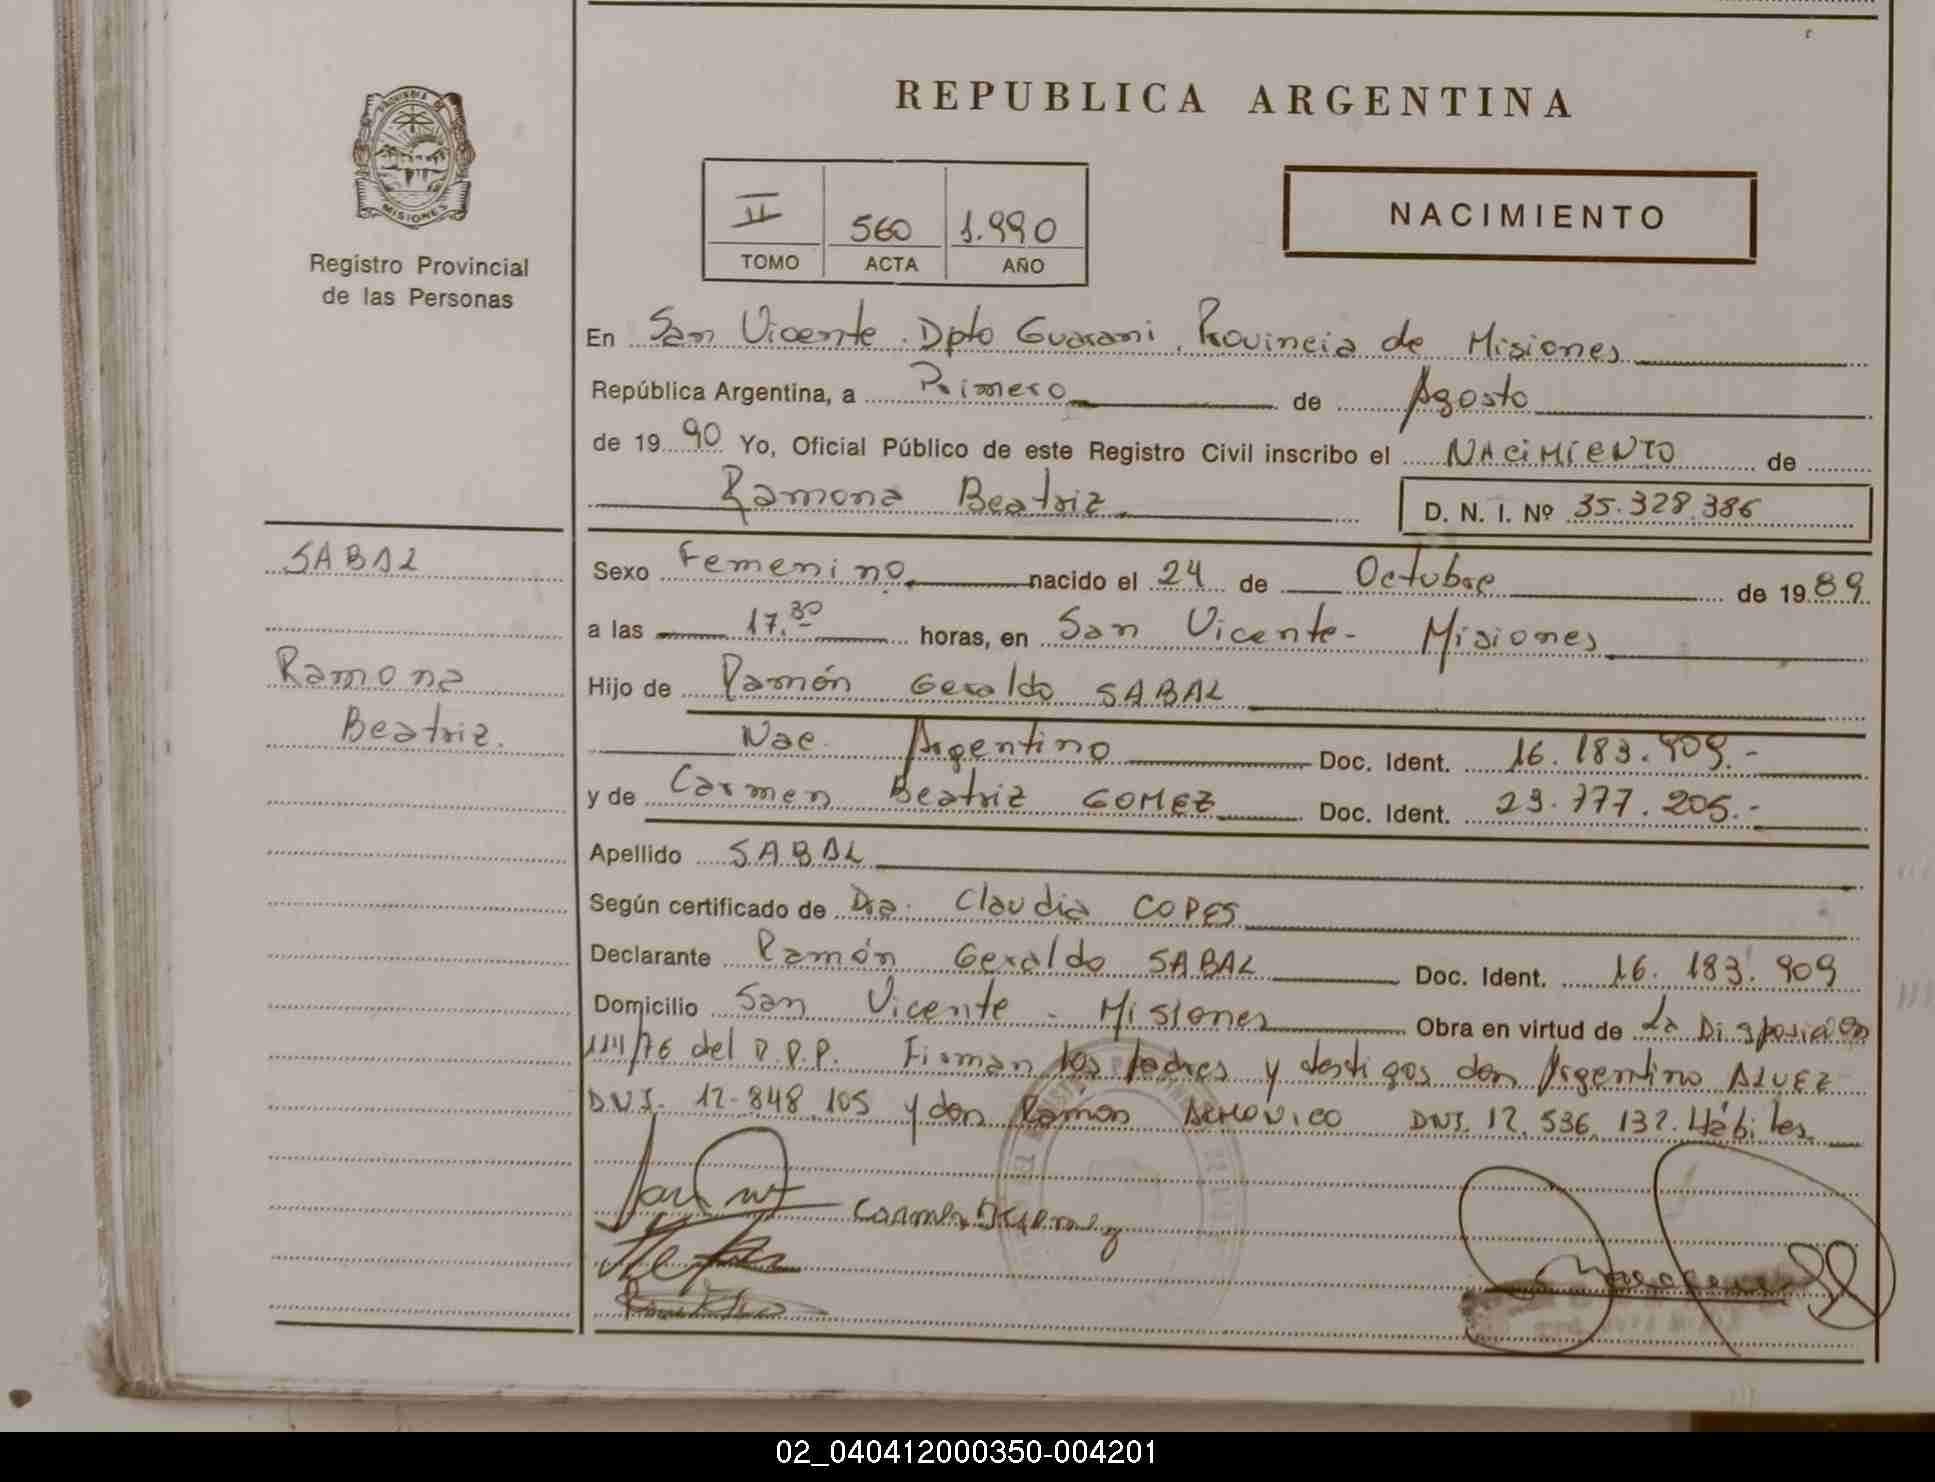 REPUBLICA ARGENTINA
PROVINCIA DE
MISIONES
Registro Provincial
de las Personas
II 560 1.990
TOMO ACTA AÑO
NACIMIENTO
En San Vicente. Dpto Guarani, Provincia de Misiones
República Argentina, a Primero de Agosto
de 1990 Yo, Oficial Público de este Registro Civil inscribo el NACIMIENTO de
Ramona Beatriz D. N. I. Nº 35.328.386
SABAL
Ramona
Beatriz.
Sexo Femenino nacido el 24 de Octubre de 1989
a las 17.30 horas, en San Vicente - Misiones
Hijo de Ramón Geraldo SABAL
Nac. Argentino Doc. Ident. 16.183.909.-
y de Carmen Beatriz GOMEZ Doc. Ident. 29.777.205.-
Apellido SABAL
Según certificado de Dra. Claudia COPES
Declarante Ramón Geraldo SABAL Doc. Ident. 16.183.909
Domicilio San Vicente - Misiones Obra en virtud de La Disposición
1111/76 del R.P.P. Firman los Padres y testigos don Argentino ALVEZ
DNI. 12.848.105 y don Ramón DNI. 12.536.132. Hábiles
02_040412000350-004201